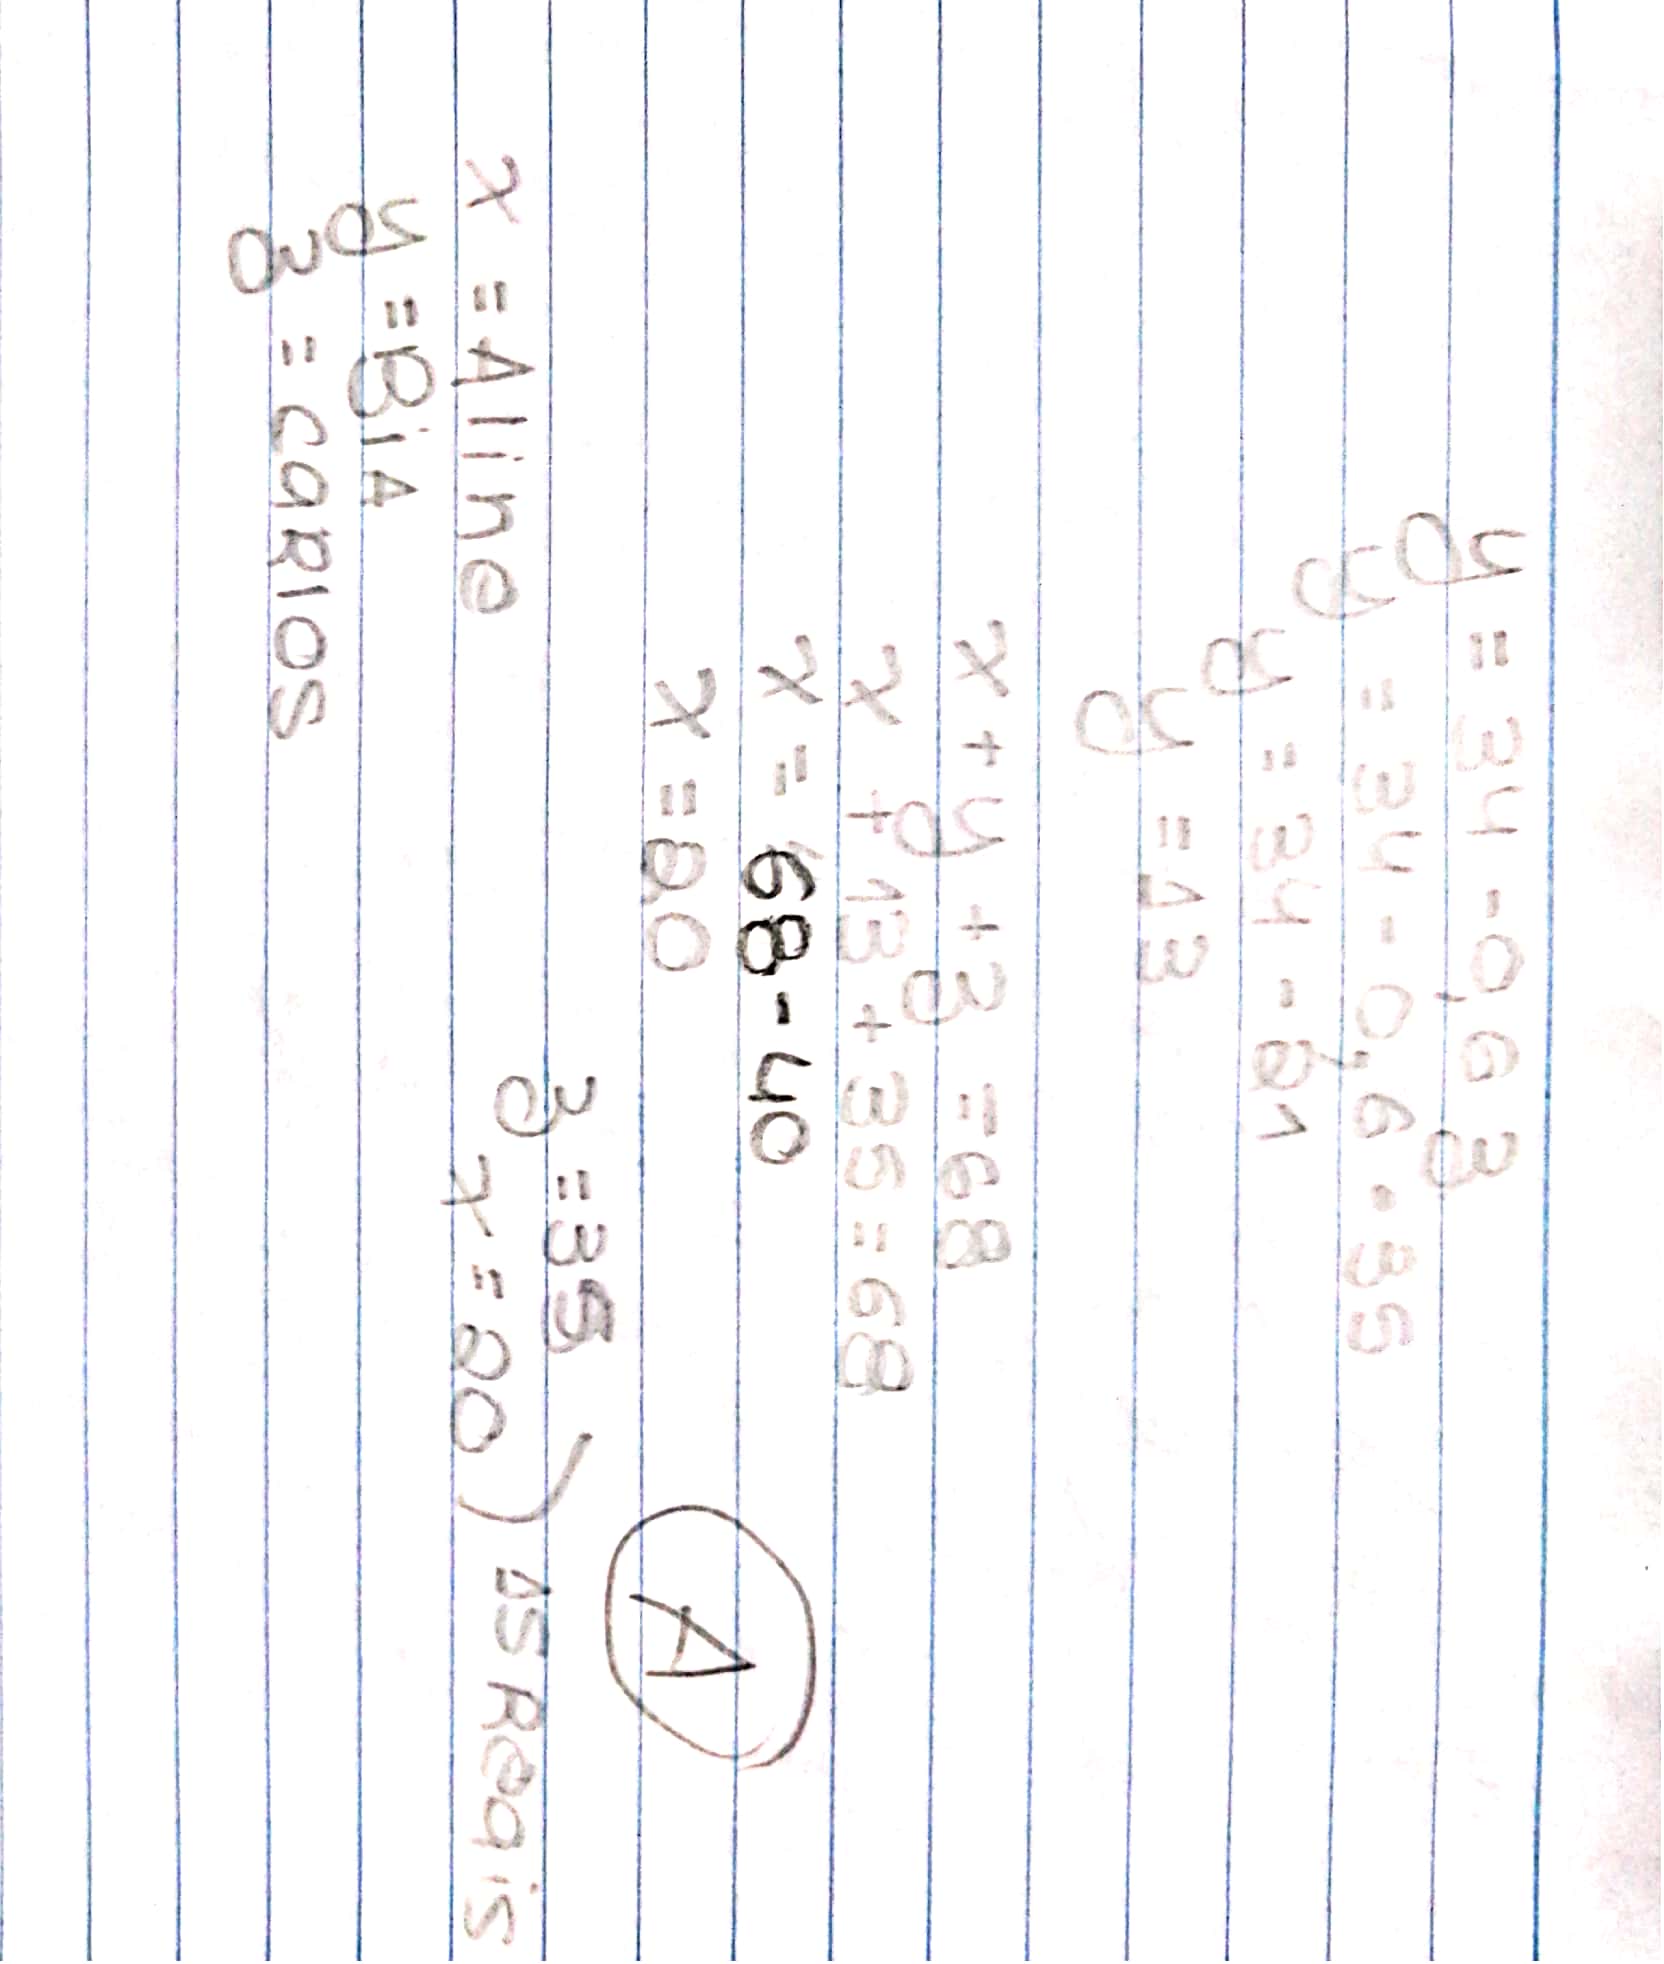 y = 34 - 0,6 z
y = 34 - 0,6 . 35
y = 34 - 21
y = 13
x + y + z = 68
x + 13 + 35 = 68
x = 68 - 40
x = 20
A
z = 35
x = 20 ) 15 Reais
x = Aline
y = BiA
z = CaRlos